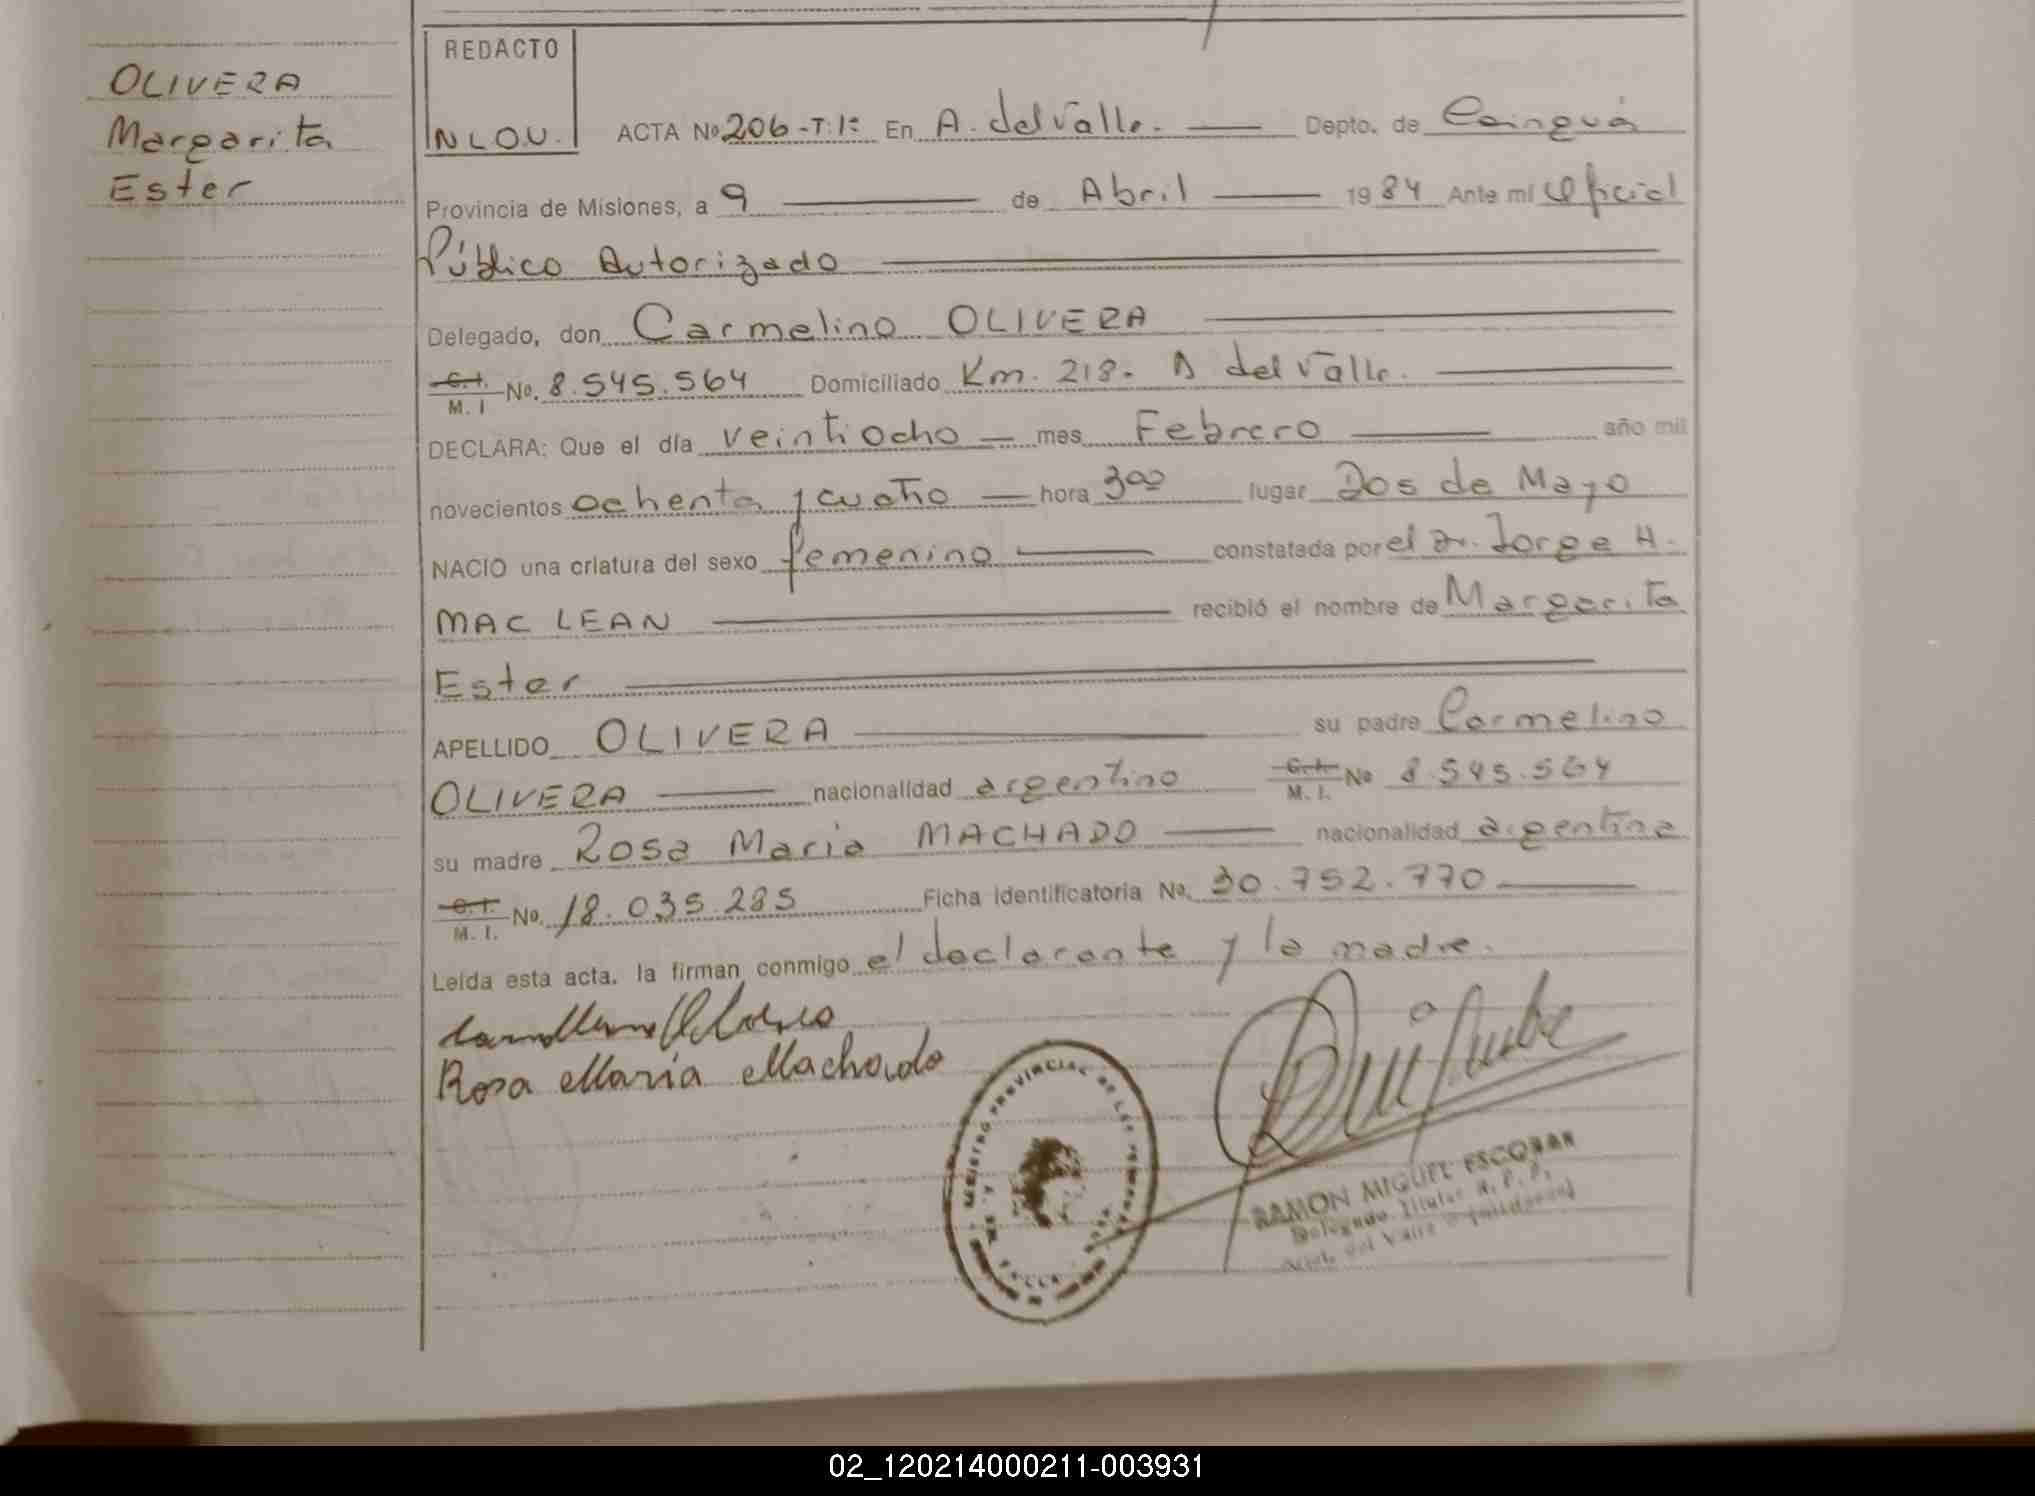 OLIVERA
Margarita
Ester
REDACTO
NLOU.
ACTA Nº 206-T:1º En A. del Valle. Depto. de Cainguás
Provincia de Misiones, a 9 de Abril 1984 Ante mí Oficial
Público Autorizado
Delegado, don Carmelino OLIVERA
C.I. M. I Nº. 8.545.564 Domiciliado Km. 218. A del Valle.
DECLARA: Que el día veintiocho mes Febrero año mil
novecientos ochenta y cuatro hora 300 lugar Dos de Mayo
NACIO una criatura del sexo femenino constatada por el Dr. Jorge H.
MAC LEAN recibió el nombre de Margarita
Ester
APELLIDO OLIVERA su padre Carmelino
OLIVERA nacionalidad argentino C.I. M. I. Nº 8.545.564
su madre Rosa Maria MACHADO nacionalidad argentina
C.I. M. I. Nº. 18.035.285 Ficha identificatoria Nº. 30.752.770
Leída esta acta, la firman conmigo el declarante y la madre.
Rosa Maria Machado
REGISTRO PROVINCIAL DE LAS PERSONAS
RAMON MIGUEL ESCOBAR
Delegado Titular R. P. P.
del Valle
02_120214000211-003931